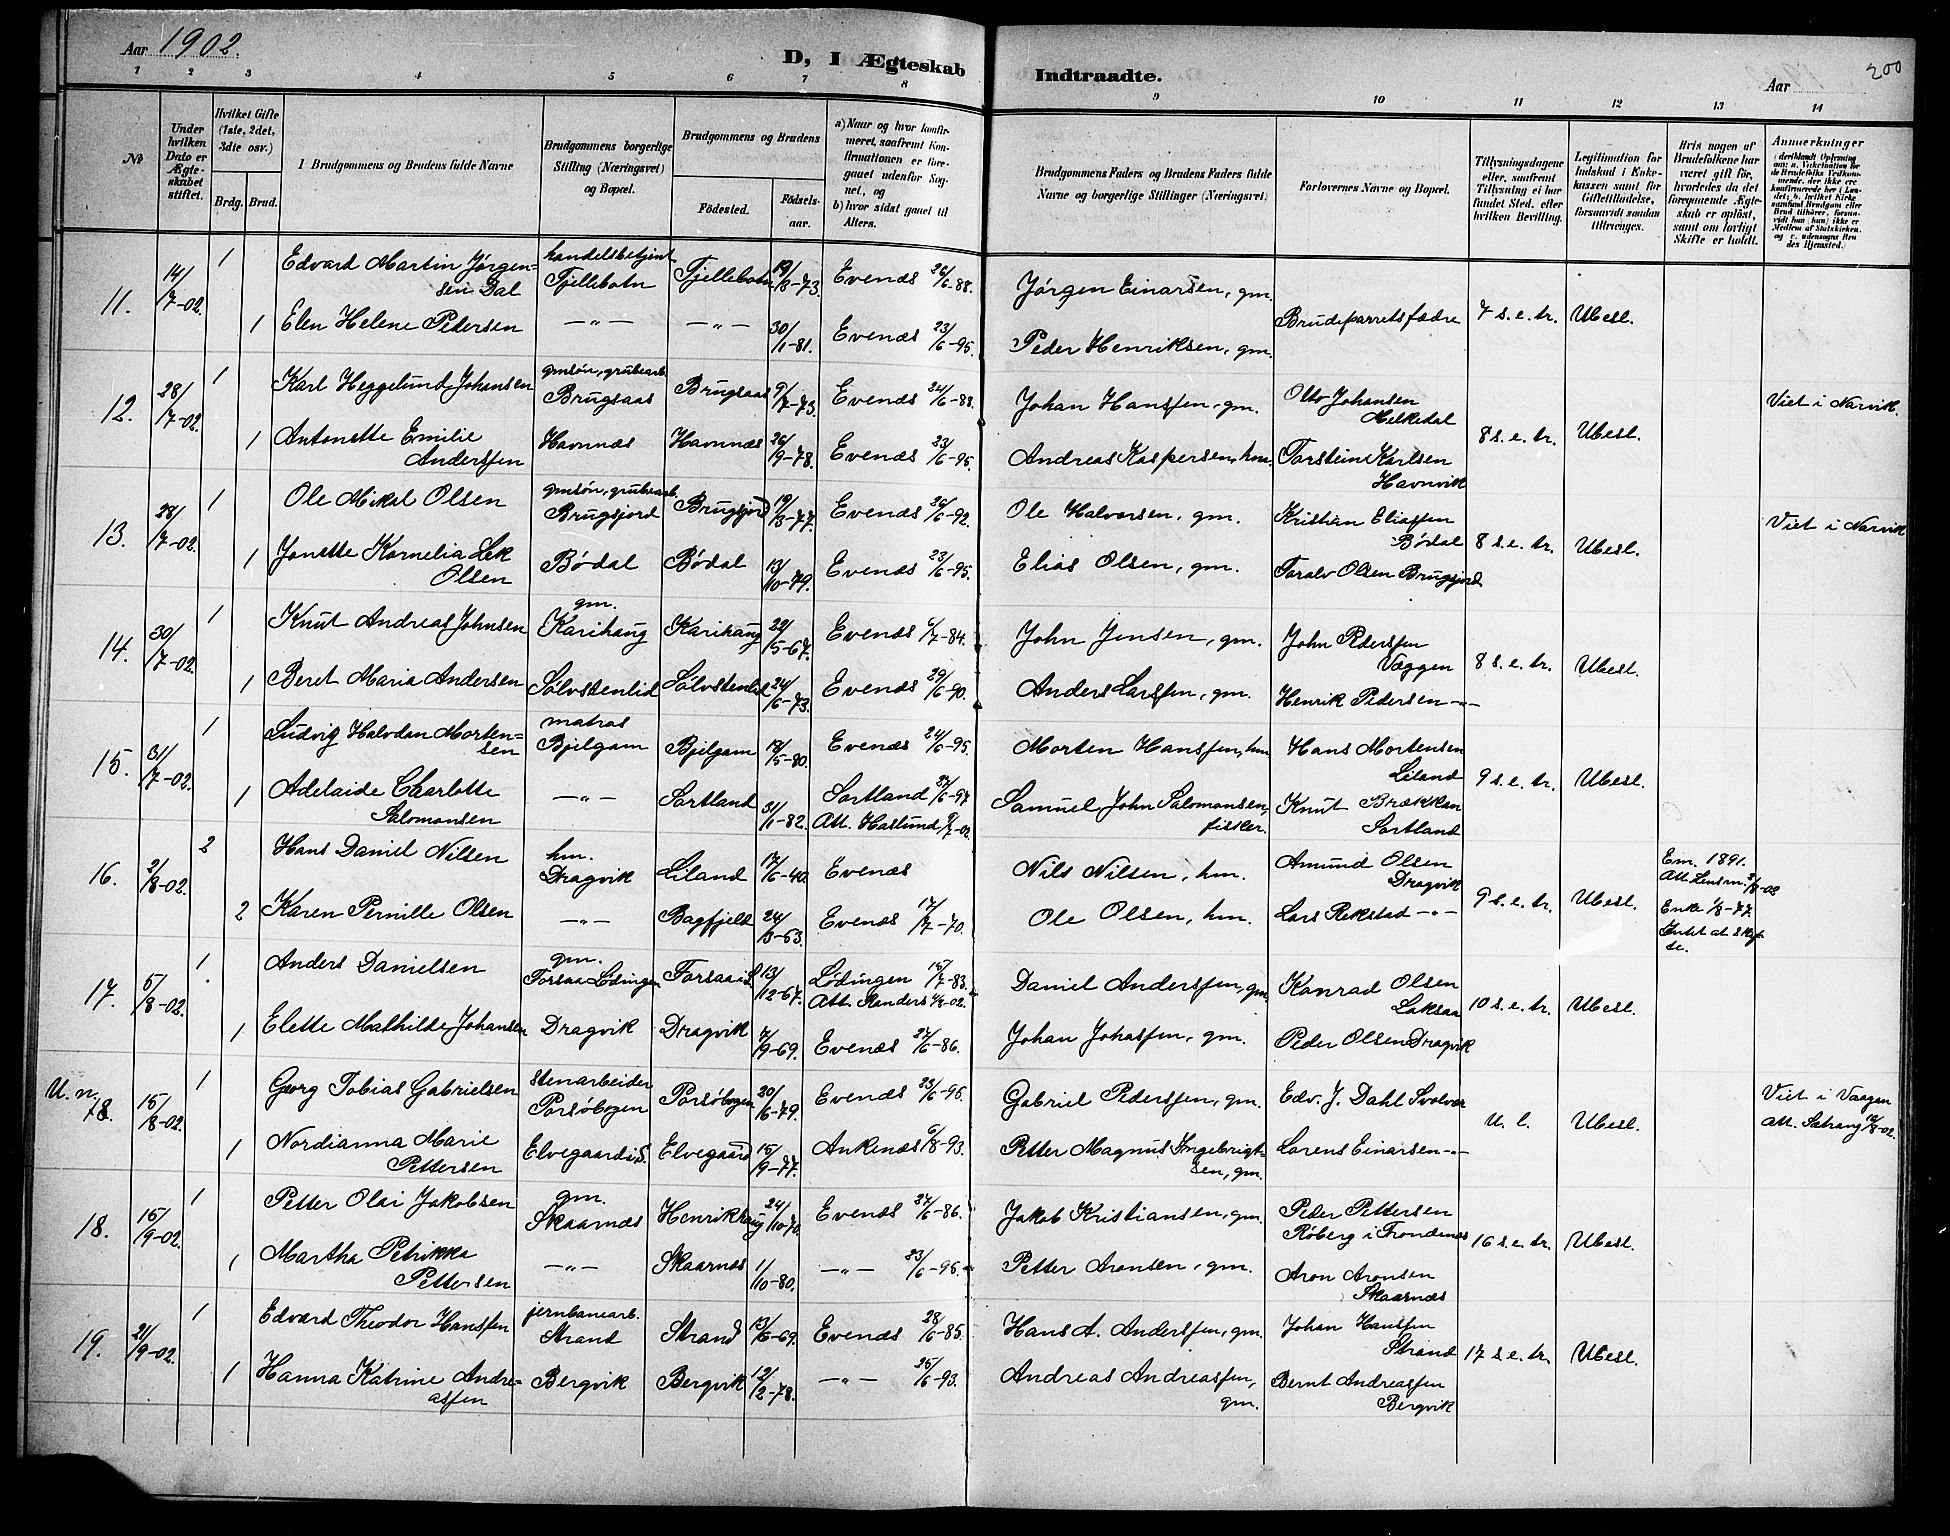 Aar 1902.
D, I Ægteskab
Indtraadte.
Aar
200
1 2 3 4 5 6 7 8 9 10 11 12 13 14
No
Under hvilken Dato er Ægteskabet stiftet.
Hvilket Gifte (1ste, 2det, 3die osv.)
Brdg. Brud.
1 Brudgommens og Brudens fulde Navne
Brudgommens borgerlige Stilling (Næringsvei) og Bopæl.
Brudgommens og Brudens
Fødested. Fødselsaar.
a) Naar og hvor konfirmeret, saafremt Konfirmationen er foregaaet udenfor Sognet, og
b) hvor sidst gaaet til Alters.
Brudgommens Faders og Brudens Faders fulde Navne og borgerlige Stillinger (Næringsvei)
Forlovernes Navne og Bopæl.
Tillysningsdagene eller, saafremt Tillysning ei har fundet Sted, efter hvilken Bevilling.
Legitimation for Indskud i Enkekassen samt for Giftetilladelse, forsaavidt saadan tiltrænges.
Hvis nogen af Brudefolkene har været gift før, hvorledes da det foregaaende Ægteskab er opløst, samt om lovligt Skifte er holdt.
Anmerkninger
11. 14/7-02. 1 Edvard Martin Jørgensen Dal handelsbetjent Fjellebotn Fjellebotn 19/3-73. Evenæs 26/6-88. Jørgen Einarsen, gm. Brudeparretsfædre 7 s. e. tr. Ubesl.
1 Elen Helene Petersen —"— —"— 30/1-81. Evenæs 23/6-95. Peder Henriksen, gm.
12. 28/7-02. 1 Karl Heggelund Johansen gmsøn, grubearb. Brugsaas Brugsaas 9/7-73. Evenæs 24/6-88. Johan Hansen, gm. Otto Johansen Melkedal 8 s. e. tr. Ubesl. Viet i Narvik.
1 Antonette Emilie Anderssen Havnnæs Havnnæs 26/9-78. Evenæs 23/6-95. Andreas Kaspersen, hm. Torstein Karlsen Havnvik
13. 28/7-02. 1 Ole Mikal Olsen gmsøn, grubearb. Brugsjord Brugsjord 19/3-77. Evenæs 26/6-92. Ole Halvorsen, gm. Kristian Eliassen Bødal 8 s. e. tr. Ubesl. Viet i Narvik
1 Jonette Kornelia Lek Olsen Bødal Bødal 13/10-79. Evenæs 23/6-95. Elias Olsen, gm. Toralv Olsen Brugsjord
14. 30/7-02. 1 Knut Andreas Johnsen gm. Karihaug Karihaug 22/5-67. Evenæs 6/7-84. John Jensen, gm. John Pederssen Væggen 8 s. e. tr. Ubesl.
1 Beret Maria Andersen Sølvstenlid Sølvstenlid 24/6-73. Evenæs 29/6-90. Anders Larssen, gm. Henrik Pedersen —"—
15. 31/7-02. 1 Ludvig Halvdan Mortensen matros Bjelgam Bjelgam 18/5-80. Evenæs 24/6-95. Morten Hanssen, hm Hans Mortensen Liland 9 s. e. tr. Ubesl.
1 Adelaide Charlotte Salomonsen —"— Sortland 31/1-82. Sortland 27/6-97 Att. Haslund 9/7-02. Samuel John Salomonsen, fisker. Knut Brækkan Sortland
16. 2/8-02. 2 Hans Daniel Nilsen hm. Dragvik Liland 17/6-40. Evenæs Nils Nilsen, hm. Amund Olsen Dragvik 9 s. e. tr. Ubesl. Em. 1891. Att. Lensm. 2/8-02
2 Karen Pernille Olsen —"— Bagfjeld 24/3-53. Evenæs 17/7-70. Ole Olsen, hm. Lars Rekstad —"— Enke 1/8-77. Intet at skifte.
17. 5/8-02. 1 Anders Danielsen gm. Forsaa Lødingen Forsaa i L. 13/12-67. Lødingen 15/7-83. Att. Renders 1/8-02. Daniel Anderssen, gm Konrad Olsen Laksaa 10 s. e. tr. Ubesl.
1 Elette Mathilde Johansen Dragvik Dragvik 7/9-69. Evenæs 27/6-86. Johan Johassen, gm. Peder Olsen Dragvik
U. n. 18. 15/8-02. 1 Georg Tobias Gabrielsen stenarbeider Porsøbogen Porsøbogen 20/6-79. Evenæs 23/6-95. Gabriel Pederssen, gm. Edv. J. Dahl Svolvær U. l. Ubesl. Viet i Vaagen Att. 12/8-02.
1 Nordianna Marie Pettersen Elvegaard i S. Elvegaard 15/9-77. Ankenæs 6/8-93. Petter Magnus Ingebrigtsen, gm. Lorens Einarsen —"—
18. 15/9-02. 1 Petter Olai Jakobsen gm. Skaarnæs Henrikhaug 24/10-70. Evenæs 27/6-86. Jakob Kristiansen, gm. Peder Pettersen Røberg i Trondenæs 16 s. e. tr. Ubesl.
1 Martha Petrikka Pettersen —"— Skaarnæs 1/10-80. —"— 23/6-95. Petter Aronsen, gm. Aron Aronsen Skaarnæs
19. 21/9-02. 1 Edvard Theodor Hanssen jernbanearb. Strand Strand 13/6-69. Evenæs 28/6-85. Hans A. Anderssen, gm. Johan Hanssen Strand 17 s. e. tr. Ubesl.
1 Hanna Katrine Andreassen Bergvik Bergvik 12/2-78. —"— 25/6-93. Andreas Andreassen, gm. Bernt Andreassen Bergvik